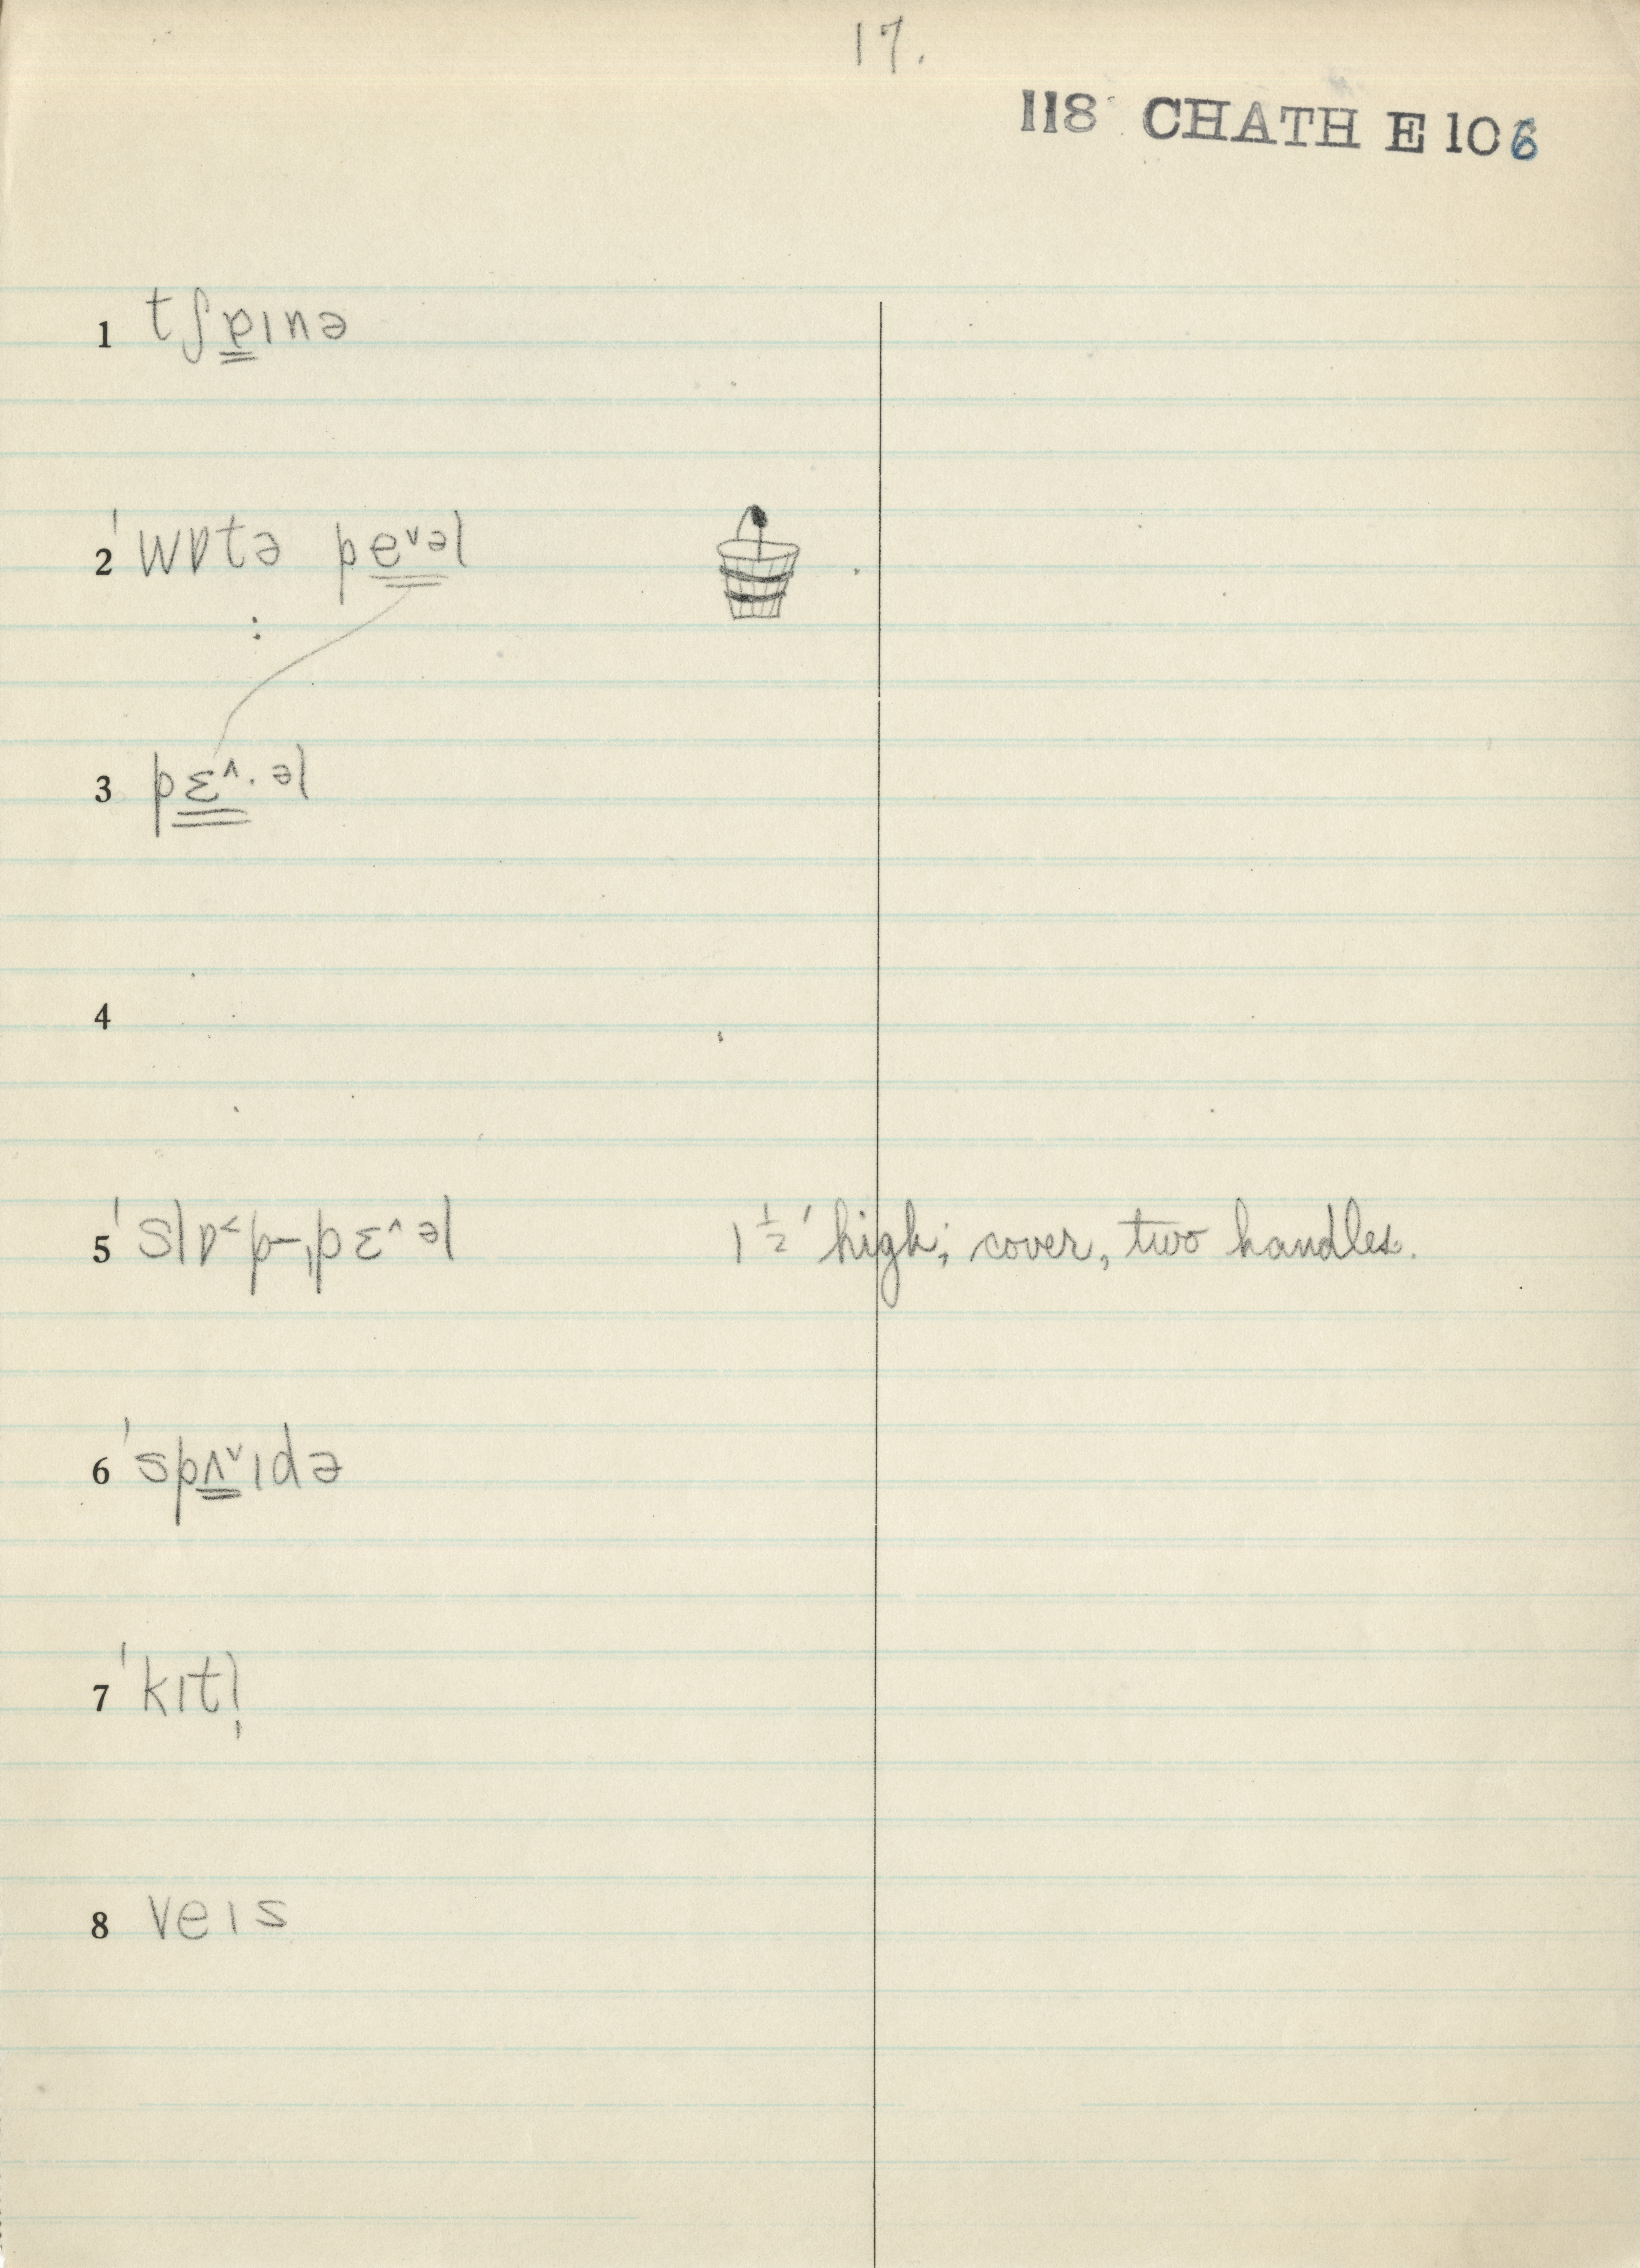 17.
118 CHATH E 106
1 tʃɐɪnə
2 ˈwɒtə pe˅əl
:
3 pɛ˄·əl
4
5 ˈslɒ˂p-ˌpɛ˄əl 1½′ high; cover, two handles.
6 ˈspʌ˅ɪdə
7 ˈkɪtl̩
8 veɪs